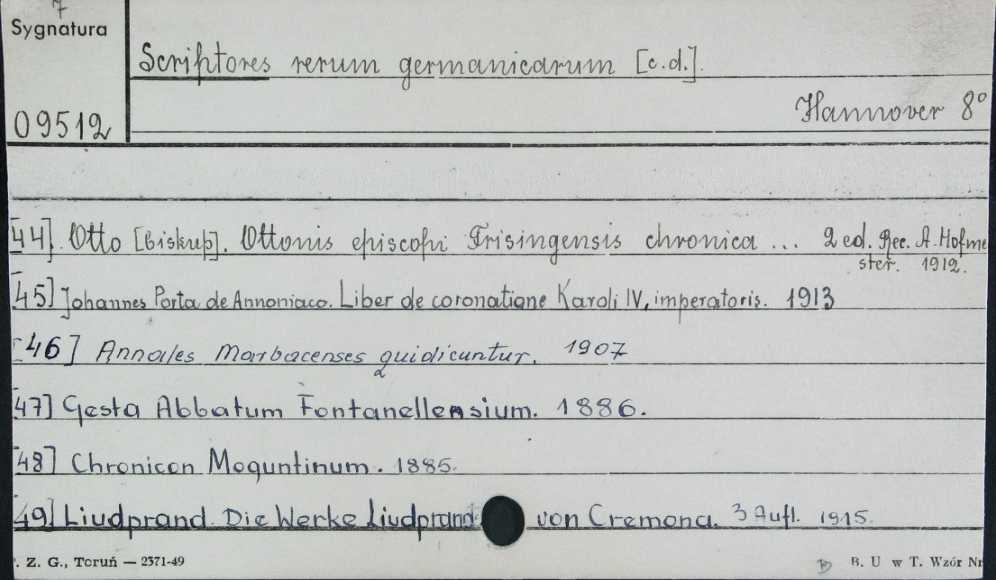 7
Sygnatura
Scriptores rerum germanicarum [c.d.].
Hannover 8°
09512
[44]. Otto [biskup]. Ottonis episcopi Frisingensis chronica ... 2 ed. Rec. A. Hofme
ster. 1912.
[45] Johannes Porta de Annoniaco. Liber de coronatione Karoli IV, imperatoris. 1913
[46] Annales Marbacenses qui dicuntur. 1907
[47] Gesta Abbatum Fontanellensium. 1886.
[48] Chronicon Moguntinum. 1885.
[49] Liudprand. Die Werke Liudprand von Cremona. 3 Aufl. 1915.
. Z. G., Toruń — 2371-49
B. U w T. Wzór Nr